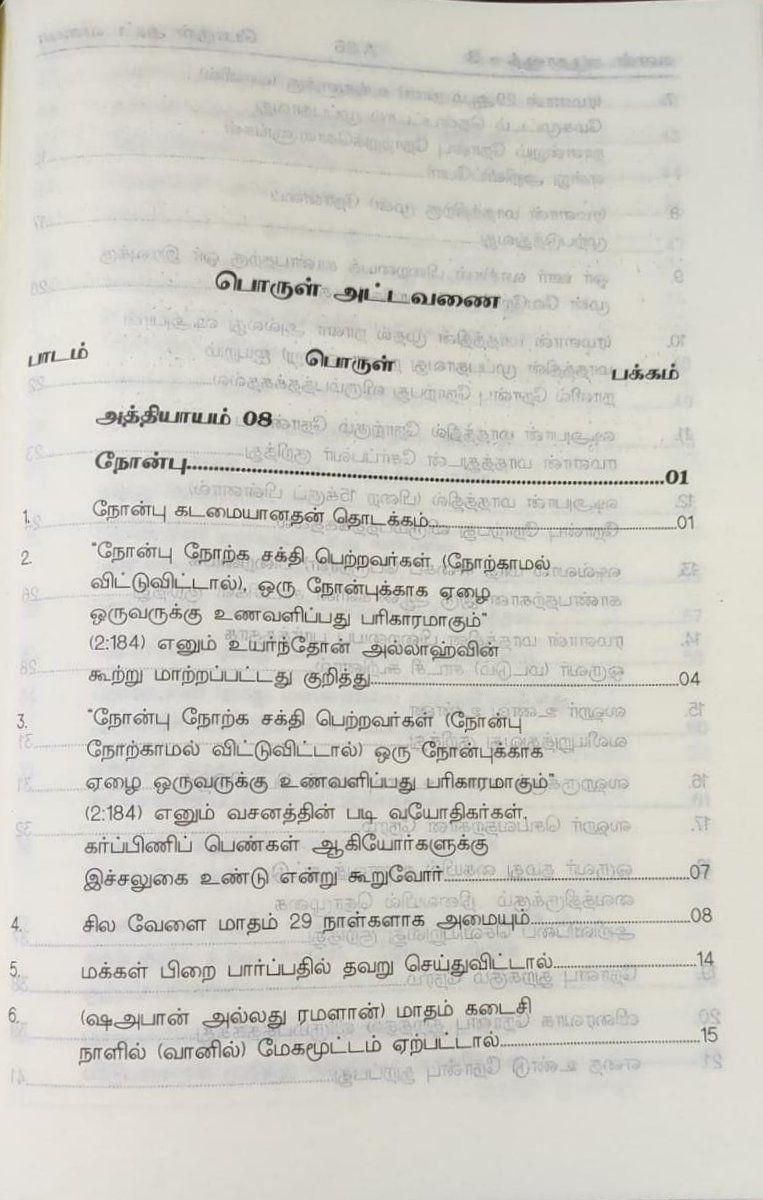 பொருள் அட்டவணை
பாடம் பொருள் பக்கம்
அத்தியாயம் 08
நோன்பு..........01
1. நோன்பு கடமையானதன் தொடக்கம்..........01
2. "நோன்பு நோற்க சக்தி பெற்றவர்கள் (நோற்காமல்
விட்டுவிட்டால்), ஒரு நோன்புக்காக ஏழை
ஒருவருக்கு உணவளிப்பது பரிகாரமாகும்"
(2:184) எனும் உயர்ந்தோன் அல்லாஹ்வின்
கூற்று மாற்றப்பட்டது குறித்து..........04
3. "நோன்பு நோற்க சக்தி பெற்றவர்கள் (நோன்பு
நோற்காமல் விட்டுவிட்டால்) ஒரு நோன்புக்காக
ஏழை ஒருவருக்கு உணவளிப்பது பரிகாரமாகும்"
(2:184) எனும் வசனத்தின் படி வயோதிகர்கள்,
கர்ப்பிணிப் பெண்கள் ஆகியோர்களுக்கு
இச்சலுகை உண்டு என்று கூறுவோர்..........07
4. சில வேளை மாதம் 29 நாள்களாக அமையும்..........08
5. மக்கள் பிறை பார்ப்பதில் தவறு செய்துவிட்டால்..........14
6. (ஷஅபான் அல்லது ரமளான்) மாதம் கடைசி
நாளில் (வானில்) மேகமூட்டம் ஏற்பட்டால்..........15